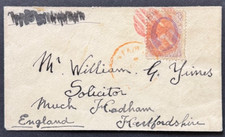 Mr. William G. Yimes
Solicitor
Much Hadham
England
Hertfordshire